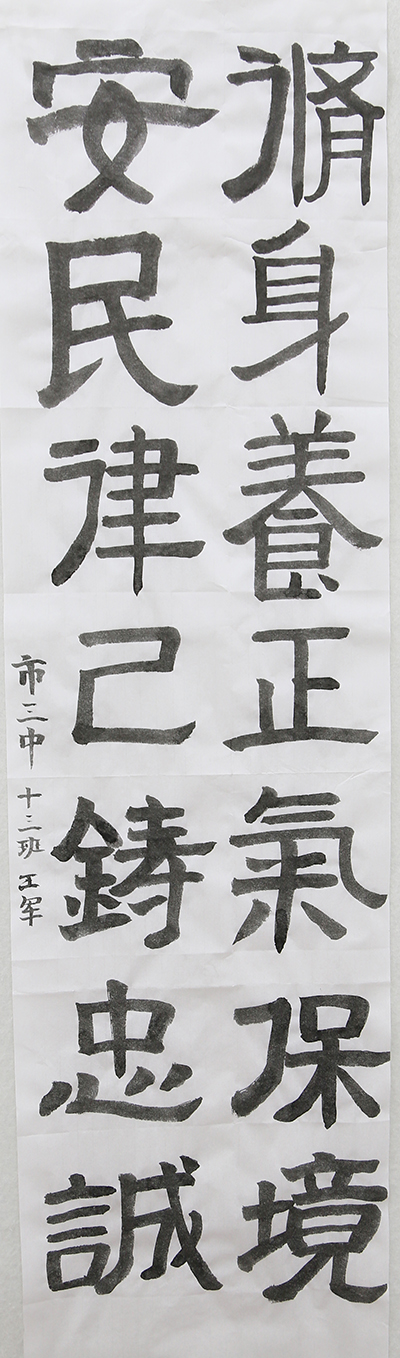 脩身養正氣保境
安民律己鑄忠誠
市三中 十二班 王军